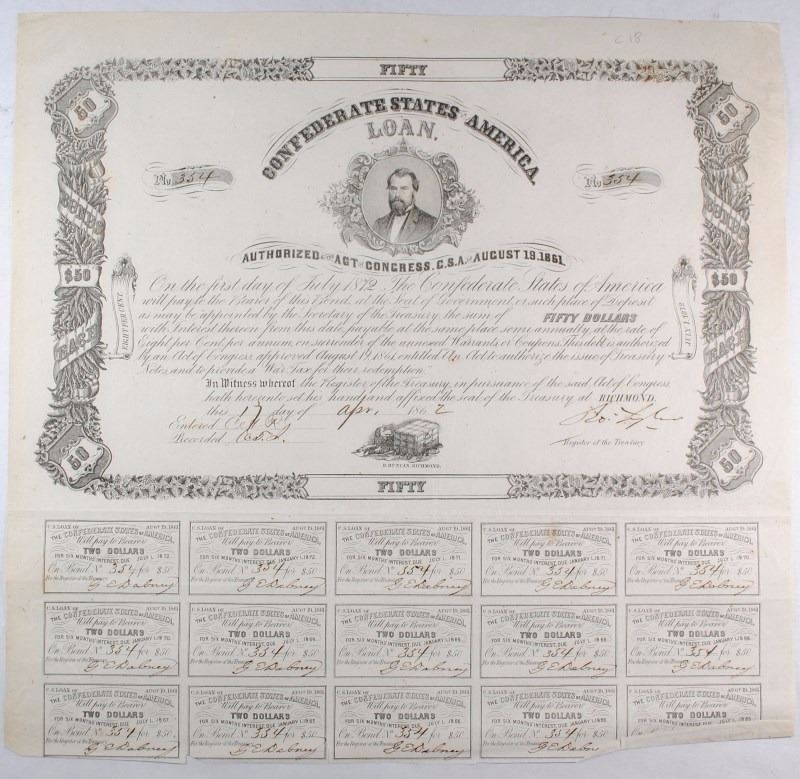 c 18
FIFTY
50
50
CONFEDERATE STATES AMERICA.
LOAN.
No 354
No 354
AUTHORIZED ACT CONGRESS. C.S.A. AUGUST 19. 1861
$50
$50
EIGHT PER CENT
On the first day of July 1872 The Confederate States of America
will pay to the Bearer of this Bond, at the Seat of Government, or such place of Deposit
as may be appointed by the Secretary of the Treasury, the sum of FIFTY DOLLARS
with Interest thereon from this date, payable at the same place semi annually, at the rate of
Eight per Cent per annum, on surrender of the annexed Warrants or Coupons. This debt is authorized
by an Act of Congress approved August 19, 1861, entitled An Act to authorize the issue of Treasury
Notes, and to provide a War Tax for their redemption.
In Witness whereof the Register of the Treasury, in pursuance of the said Act of Congress
hath hereunto set his hand and affixed the seal of the Treasury at RICHMOND,
this 17 day of Apr. 1862
Entered
Recorded
Register of the Treasury
B. DUNCAN, RICHMOND.
50
50
FIFTY
C.S. LOAN OF AUGT 19, 1861
THE CONFEDERATE STATES OF AMERICA,
Will pay to Bearer
TWO DOLLARS
FOR SIX MONTHS INTEREST, DUE JULY 1, 1872.
On Bond No 354 for $50
For the Register of the Treasury
G E Dabney
C.S. LOAN OF AUGT 19, 1861
THE CONFEDERATE STATES OF AMERICA,
Will pay to Bearer
TWO DOLLARS
FOR SIX MONTHS INTEREST, DUE JANUARY 1, 1872.
On Bond No 354 for $50
For the Register of the Treasury
G E Dabney
C.S. LOAN OF AUGT 19, 1861
THE CONFEDERATE STATES OF AMERICA,
Will pay to Bearer
TWO DOLLARS
FOR SIX MONTHS INTEREST, DUE JULY 1, 1871.
On Bond No 354 for $50
For the Register of the Treasury
G E Dabney
C.S. LOAN OF AUGT 19, 1861
THE CONFEDERATE STATES OF AMERICA,
Will pay to Bearer
TWO DOLLARS
FOR SIX MONTHS INTEREST, DUE JANUARY 1, 1871.
On Bond No 354 for $50
For the Register of the Treasury
G E Dabney
C.S. LOAN OF AUGT 19, 1861
THE CONFEDERATE STATES OF AMERICA,
Will pay to Bearer
TWO DOLLARS
FOR SIX MONTHS INTEREST, DUE JULY 1, 1870.
On Bond No 354 for $50
For the Register of the Treasury
G E Dabney
C.S. LOAN OF AUGT 19, 1861
THE CONFEDERATE STATES OF AMERICA,
Will pay to Bearer
TWO DOLLARS
FOR SIX MONTHS INTEREST, DUE JANUARY 1, 1870.
On Bond No 354 for $50
For the Register of the Treasury
G E Dabney
C.S. LOAN OF AUGT 19, 1861
THE CONFEDERATE STATES OF AMERICA,
Will pay to Bearer
TWO DOLLARS
FOR SIX MONTHS INTEREST, DUE
On Bond No 354 for $50
For the Register of the Treasury
G E Dabney
C.S. LOAN OF AUGT 19, 1861
THE CONFEDERATE STATES OF AMERICA,
Will pay to Bearer
TWO DOLLARS
FOR SIX MONTHS INTEREST, DUE JANUARY 1,
On Bond No 354 for $50
For the Register of the Treasury
G E Dabney
C.S. LOAN OF AUGT 19, 1861
THE CONFEDERATE STATES OF AMERICA,
Will pay to Bearer
TWO DOLLARS
FOR SIX MONTHS INTEREST, DUE JULY 1, 1868.
On Bond No 354 for $50
For the Register of the Treasury
G E Dabney
C.S. LOAN OF AUGT 19, 1861
THE CONFEDERATE STATES OF AMERICA,
Will pay to Bearer
TWO DOLLARS
FOR SIX MONTHS INTEREST, DUE JANUARY 1, 1868.
On Bond No 354 for $50
For the Register of the Treasury
G E Dabney
C.S. LOAN OF AUGT 19, 1861
THE CONFEDERATE STATES OF AMERICA,
Will pay to Bearer
TWO DOLLARS
FOR SIX MONTHS INTEREST, DUE JULY 1, 1867.
On Bond No 354 for $50
For the Register of the Treasury
G E Dabney
C.S. LOAN OF AUGT 19, 1861
THE CONFEDERATE STATES OF AMERICA,
Will pay to Bearer
TWO DOLLARS
FOR SIX MONTHS INTEREST, DUE JANUARY 1,
On Bond No 354 for $50
For the Register of the Treasury
G E Dabney
C.S. LOAN OF AUGT 19, 1861
THE CONFEDERATE STATES OF AMERICA,
Will pay to Bearer
TWO DOLLARS
FOR SIX MONTHS INTEREST, DUE JULY 1,
On Bond No 354 for $50
For the Register of the Treasury
G E Dabney
C.S. LOAN OF AUGT 19, 1861
THE CONFEDERATE STATES OF AMERICA,
Will pay to Bearer
TWO DOLLARS
FOR SIX MONTHS INTEREST, DUE JANUARY 1,
On Bond No 354 for $50
For the Register of the Treasury
G E Dabn
C.S. LOAN OF AUGT 19, 1861
THE CONFEDERATE STATES OF AMERICA,
Will pay to Bearer
TWO DOLLARS
FOR SIX MONTHS INTEREST, DUE JULY 1,